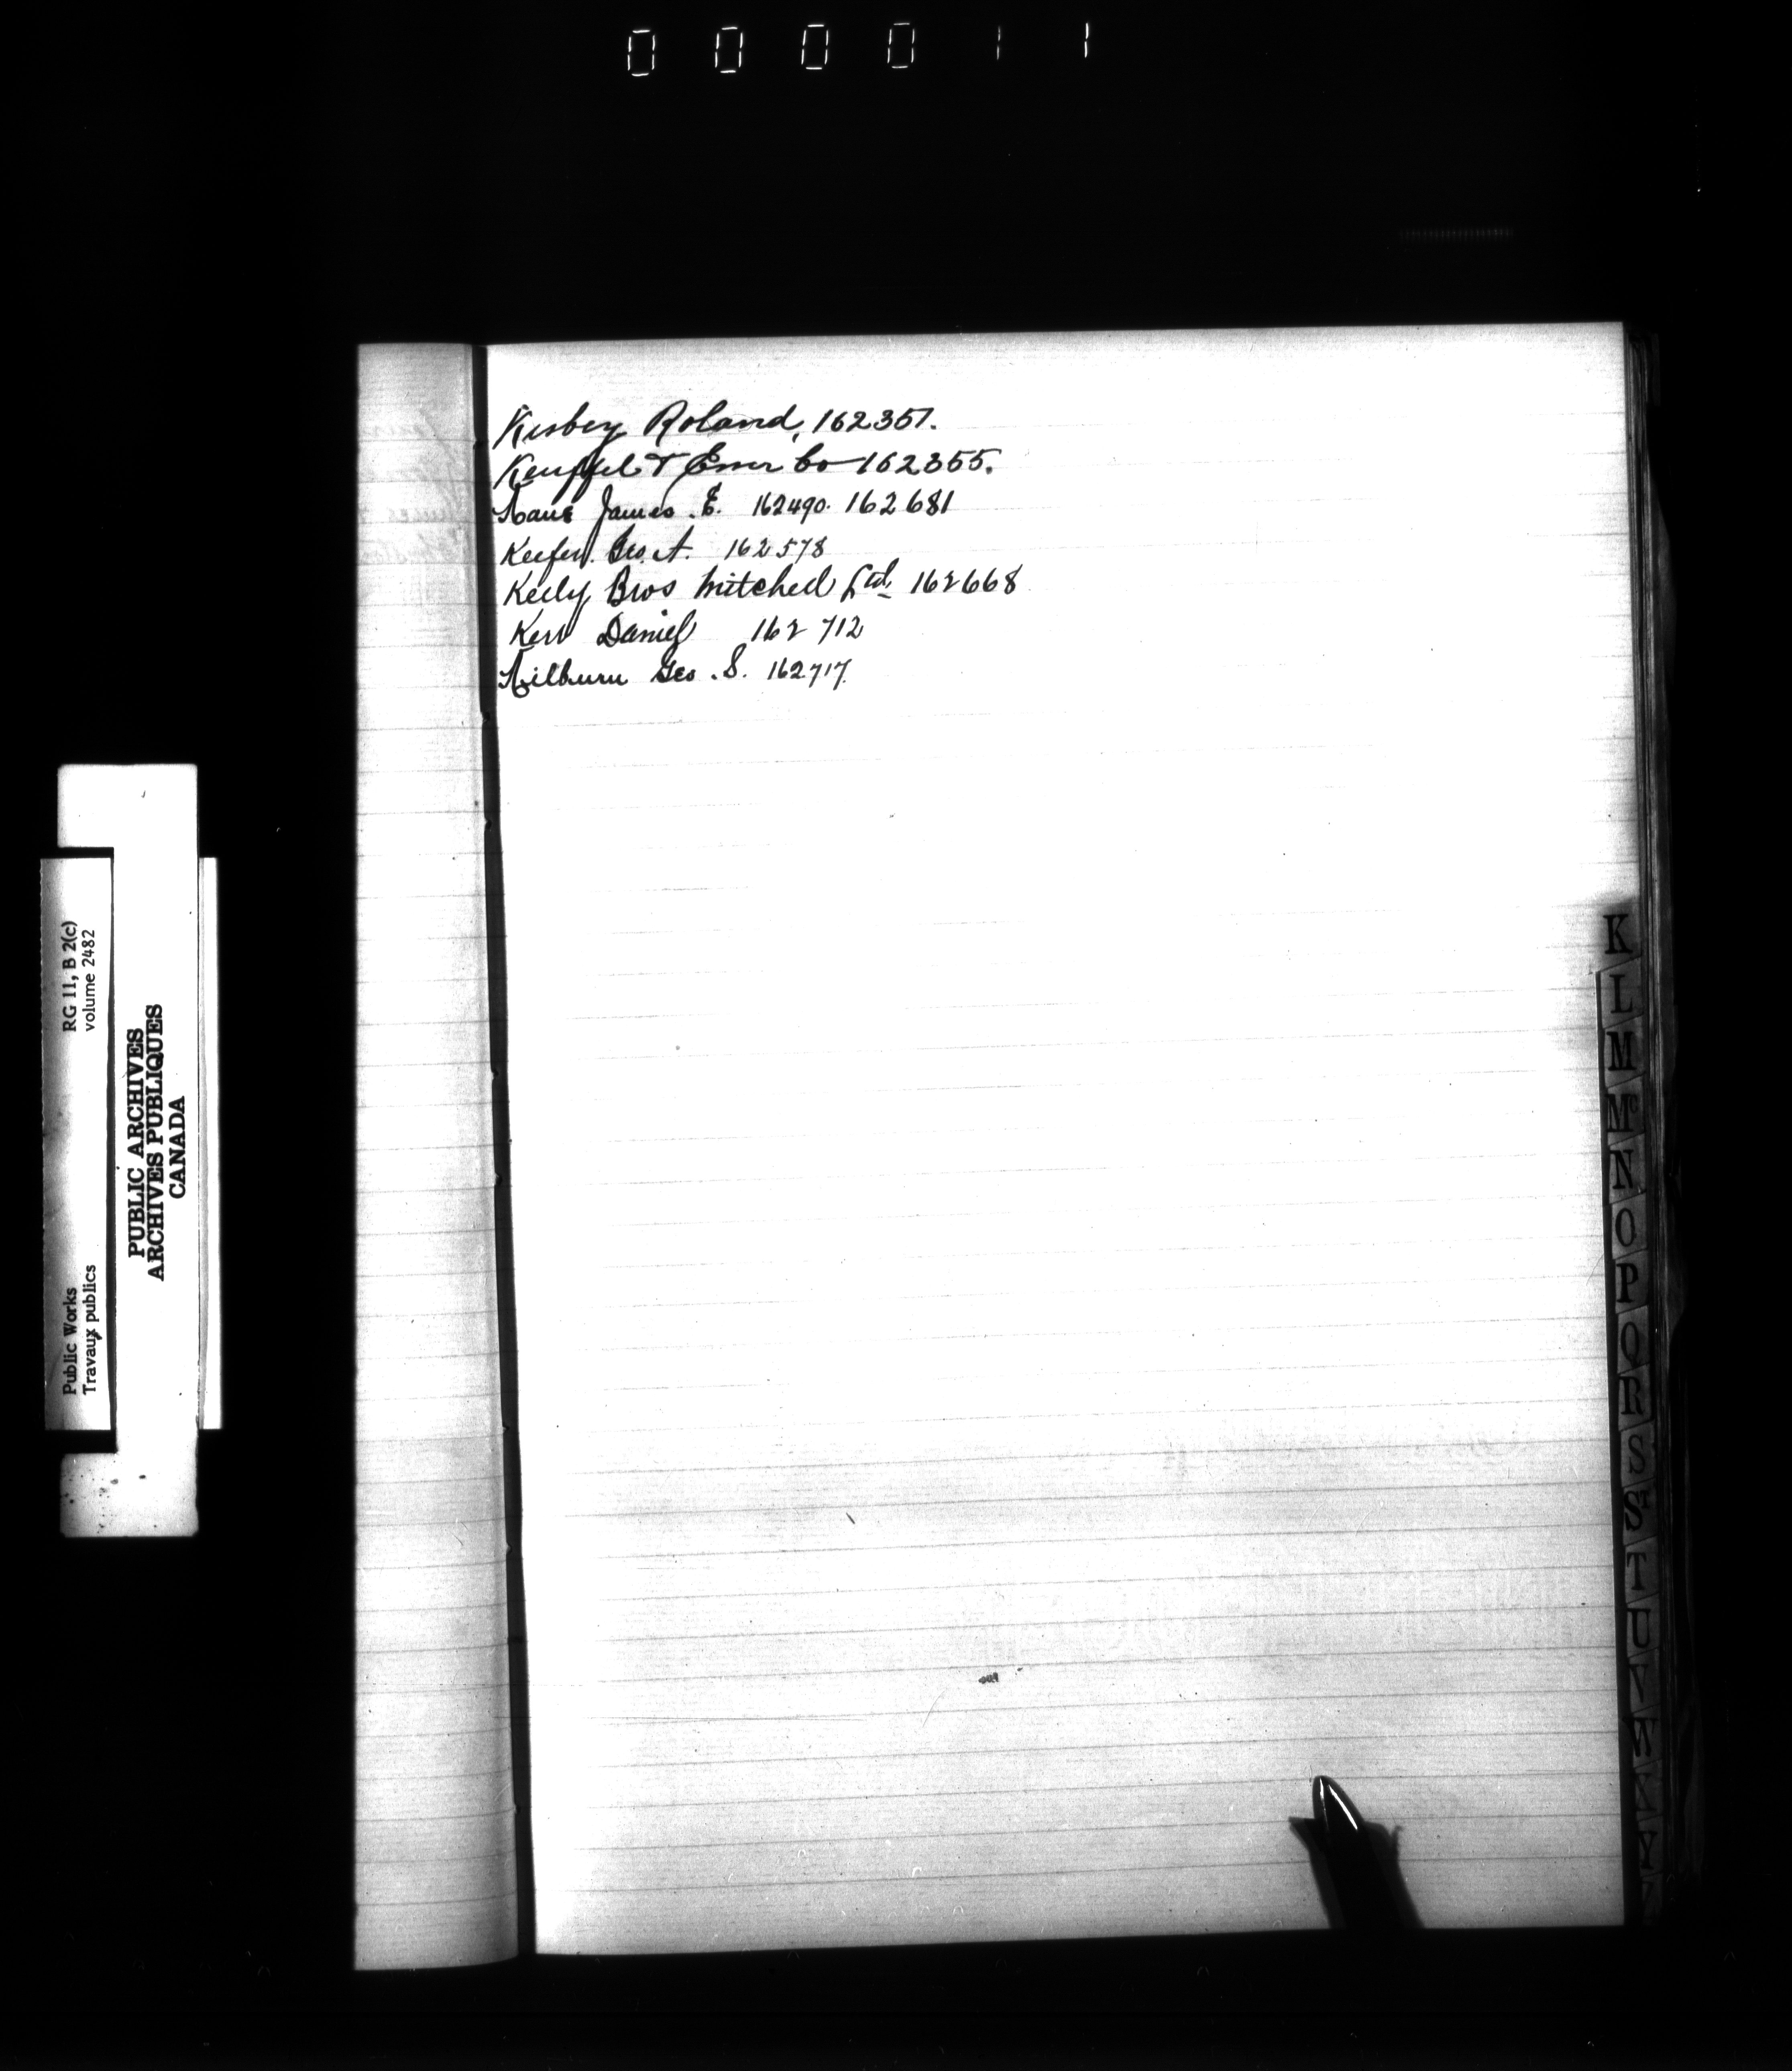 000011
Kisbey Roland, 162351.
Keuffel & Esser Co 162355.
Kane James. E. 162490. 162681
Keefer. Geo. A. 162578
Keely Bros Mitchell Ltd. 162668
Kerr Daniel 162712
Kilburn Geo. S. 162717.
RG 11, B 2(c)
volume 2482
PUBLIC ARCHIVES
ARCHIVES PUBLIQUES
CANADA
Public Works
Travaux publics
K
L
M
Mc
N
O
P
Q
R
S
S
T
U
V
W
X
Y